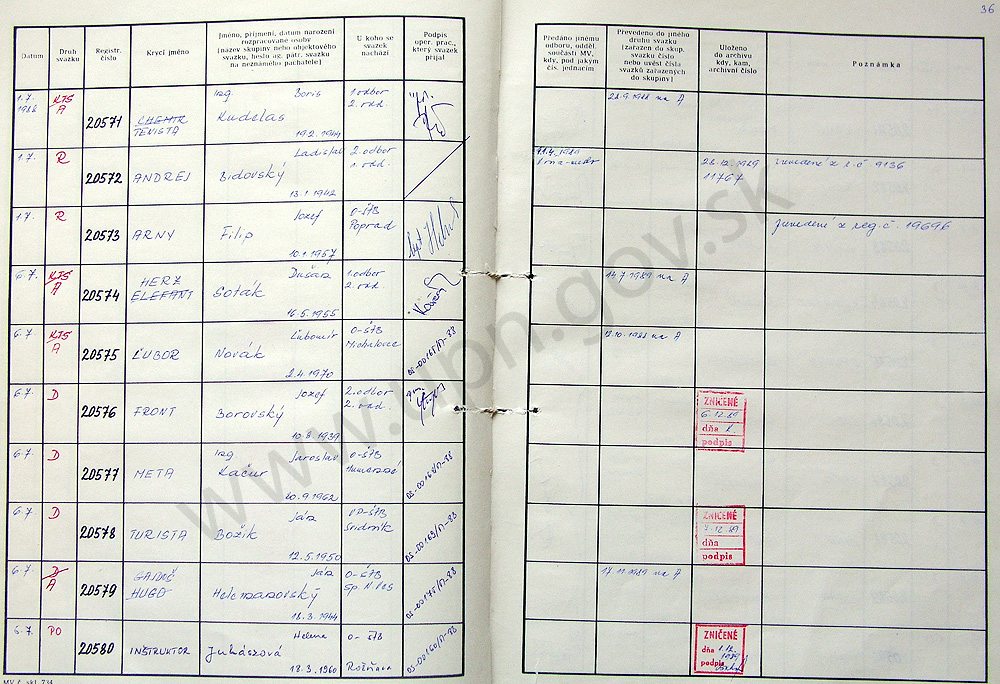 36
Datum
Druh svazku
Registr. číslo
Krycí jméno
Jméno, příjmení, datum narození
rozpracované osoby
[název skupiny nebo objektového
svazku, heslo ag. pátr. svazku
na neznámého pachatele]
U koho se
svazek
nachází
Podpis
oper. prac.,
který svazek
přijal
Předáno jinému
odboru, odděl.
součásti MV,
kdy, pod jakým
čís. jednacím
Převedeno do jiného
druhu svazku
[zařazen do skup.
svazku číslo
nebo uvést čísla
svazků zařazených
do skupiny]
Uloženo
do archivu
kdy, kam,
archivní číslo
Poznámka
1.7.
1988
KTS
A
20571
CHEMIK
TENISTA
Ing Boris
Kudelas
19.2.1944
1. odbor
2. odd.
28.9.1988 na A
1.7.
R
20572
ANDREJ
Ladislav
Bidovský
13.1.1942
2. odbor
1. odd.
28.12.1989
11767
zvedené z r.č. 9136
1.7.
R
20573
ARNY
Jozef
Filip
10.1.1957
O-ŠTB
Poprad
zvedené z reg.č. 19696
6.7.
KTS
A
20574
HERZ
ELEFANT
Dušan
Soták
16.5.1955
1. odbor
2. odd.
14.7.1989 na A
6.7.
KTS
A
20575
ĽUBOR
Ľubomír
Novák
2.4.1970
O-ŠTB
Michalovce
OS-00165/17-88
12.10.1988 na A
6.7.
D
20576
FRONT
Jozef
Borovský
10.8.1939
2. odbor
2. odd.
ZNIČENÉ
6.12.89
dňa
podpis
6.7.
D
20577
META
Ing Jaroslav
Kačur
20.9.1962
O-ŠTB
Humenné
6.7.
D
20578
TURISTA
Ján
Božik
12.5.1950
Svidník
OS-00169/17-88
ZNIČENÉ
dňa
podpis
6.7.
D
A
20579
HUGO
Ján
18.3.1944
O-ŠTB
Sp. N. Ves
OS-00175/17-88
17.11.1989 na A
6.7.
PO
20580
INŠTRUKTOR
Helena
Juhászová
18.3.1960
O-ŠTB
Rožňava
OS-00160/17-88
ZNIČENÉ
dňa
podpis
www.upn.gov.sk